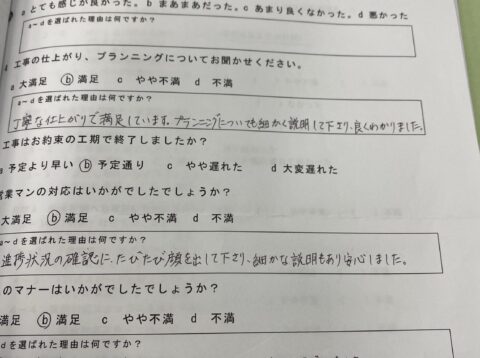 a とても感じが良かった。b まあまあだった。c あまり良くなかった。d 悪かった
a～dを選ばれた理由は何ですか？
4 工事の仕上がり、プランニングについてお聞かせください。
a 大満足 b 満足 c やや不満 d 不満
a～dを選ばれた理由は何ですか？
丁寧な仕上がりで満足しています。プランニングについても細かく説明して下さり、良くわかりました。
工事はお約束の工期で終了しましたか？
a 予定より早い b 予定通り c やや遅れた d 大変遅れた
営業マンの対応はいかがでしたでしょうか？
大満足 b 満足 c やや不満 d 不満
a～dを選ばれた理由は何ですか？
進捗状況の確認に、たびたび顔を出して下さり、細かな説明もあり安心しました。
のマナーはいかがでしたでしょうか？
満足 b 満足 c やや不満 d 不満
dを選ばれた理由は何ですか？